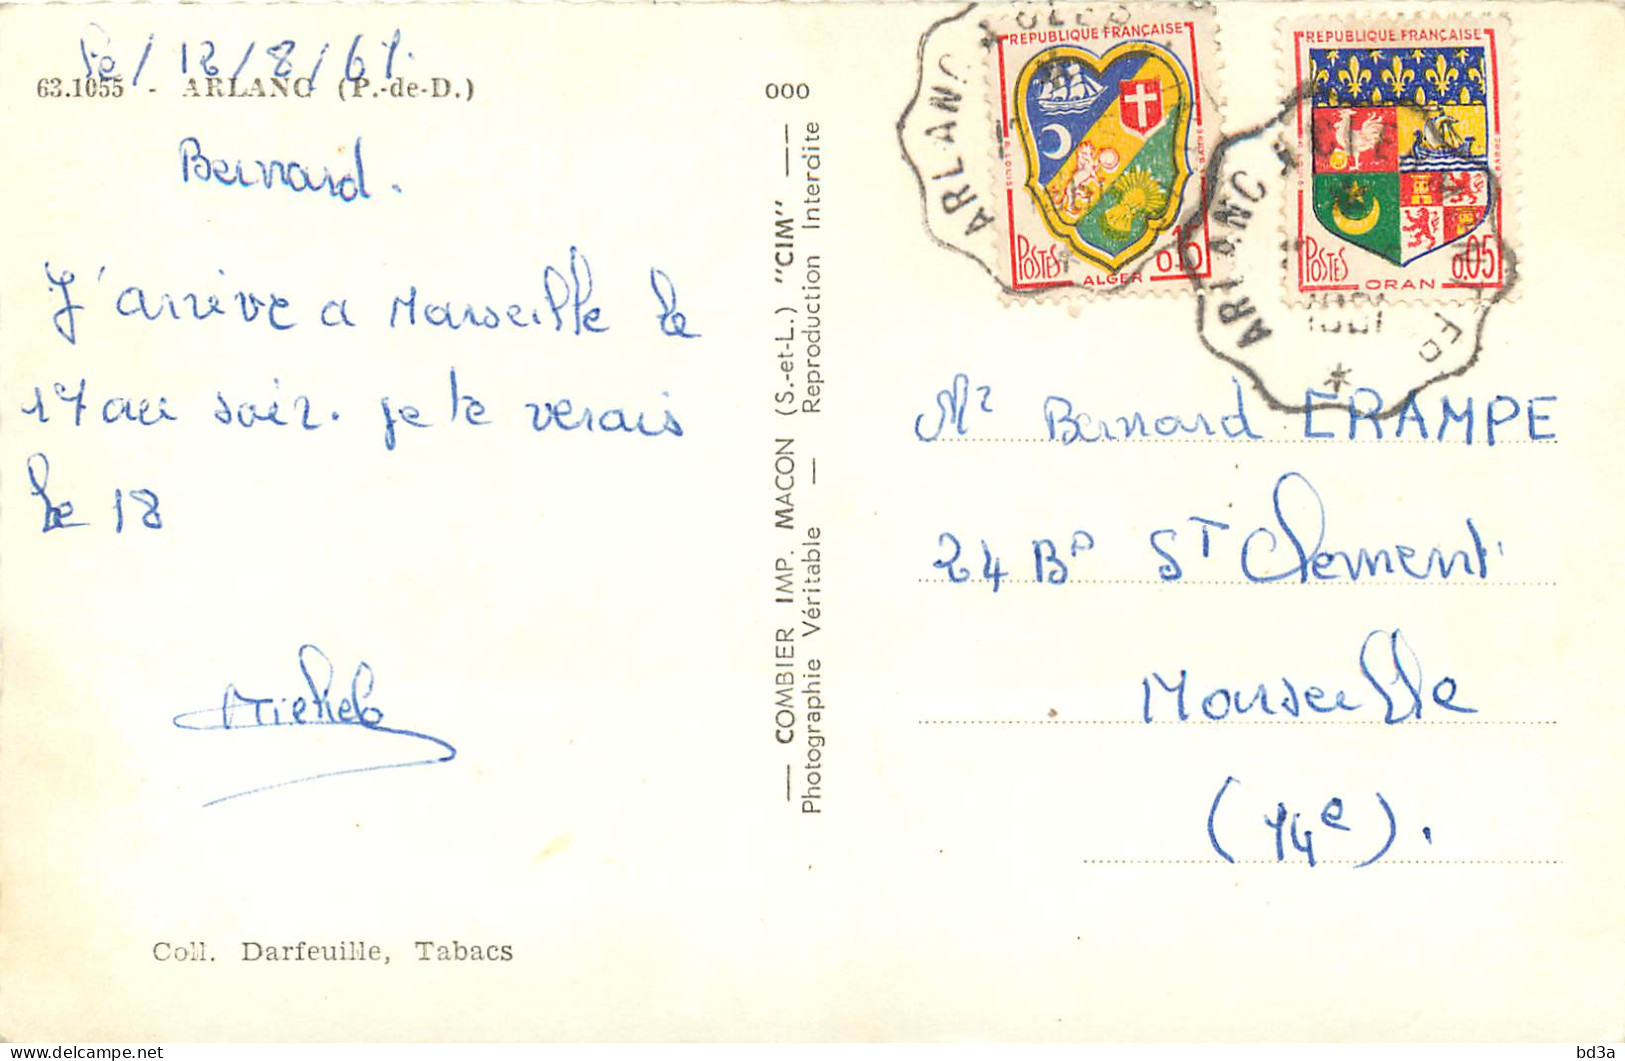 Le / 12 / 8 / 61.
63.1055 - ARLANC (P.-de-D.)
Bernard.
J'arrive a Marseille le
17 au soir. je te verais
le 18
Michel
Coll. Darfeuille, Tabacs
000
— COMBIER IMP. MACON (S.-et-L.) "CIM" —
Photographie Véritable — Reproduction Interdite
ARLANC
REPUBLIQUE FRANÇAISE
POSTES
0.10
ALGER
ARLANC
REPUBLIQUE FRANÇAISE
POSTES
0.05
ORAN
Mr Bernard CRAMPE
24 Bd St Clement
Marseille
(14e).
bd3a